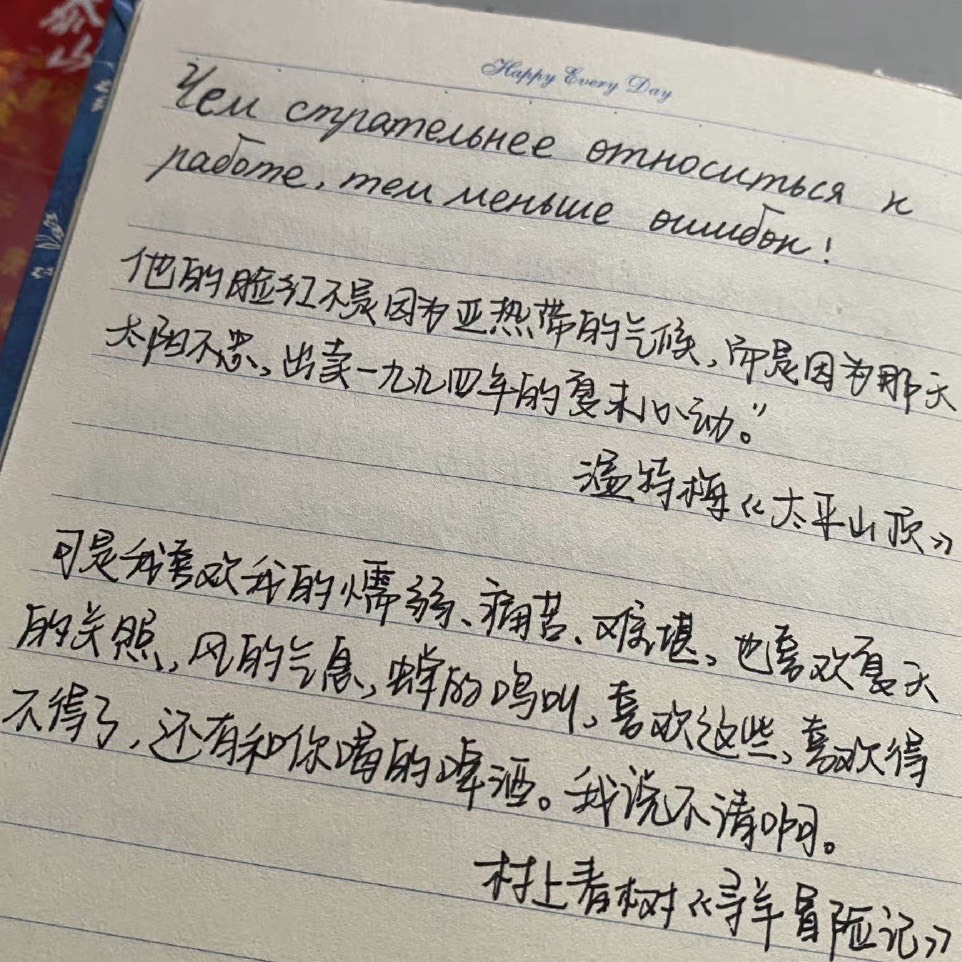 泰山
Happy Every Day
Чем стрательнее относиться к
работе, тем меньше ошибок!
他的脸红不是因为亚热带的气候，而是因为那天
太阳不忠，出卖一九九四年的夏末心动。”
温特梅《太平山顶》
可是我喜欢我的懦弱、痛苦、难堪，也喜欢夏天
的关照，风的气息，蝉的鸣叫，喜欢这些，喜欢得
不得了，还有和你喝的啤酒。我说不清啊。
村上春树《寻羊冒险记》